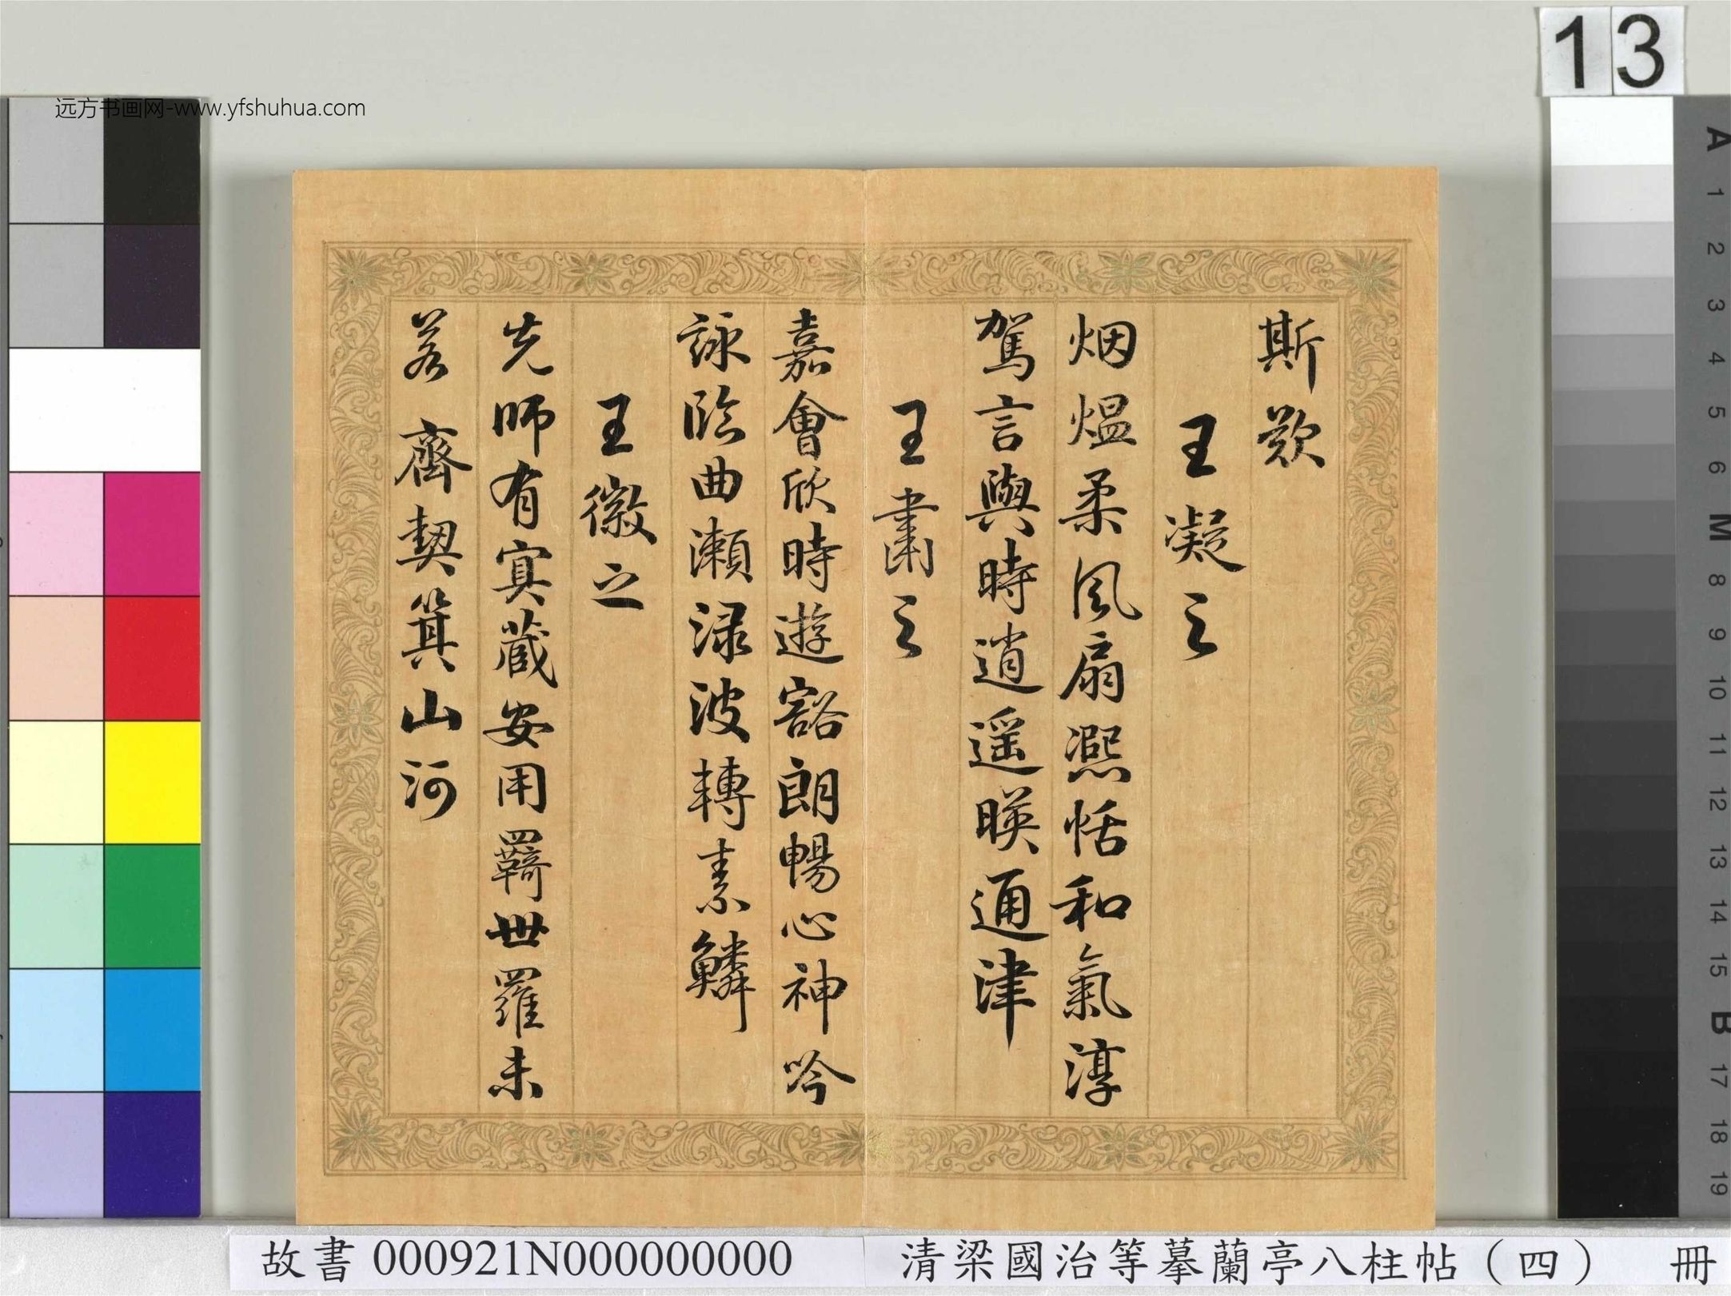 斯歎
王凝之
烟煴柔風扇熈恬和氣淳
駕言與時逍遥暎通津
王肅之
嘉會欣時遊豁朗暢心神吟
詠臨曲瀨渌波轉素鱗
王徽之
先師有冥藏安用羈世羅未
若齊契箕山河
远方书画网-www.yfshuhua.com
13
A
1
2
3
4
5
6
M
8
9
10
11
12
13
14
15
B
17
18
19
故書 000921N000000000
清梁國治等摹蘭亭八柱帖（四） 冊